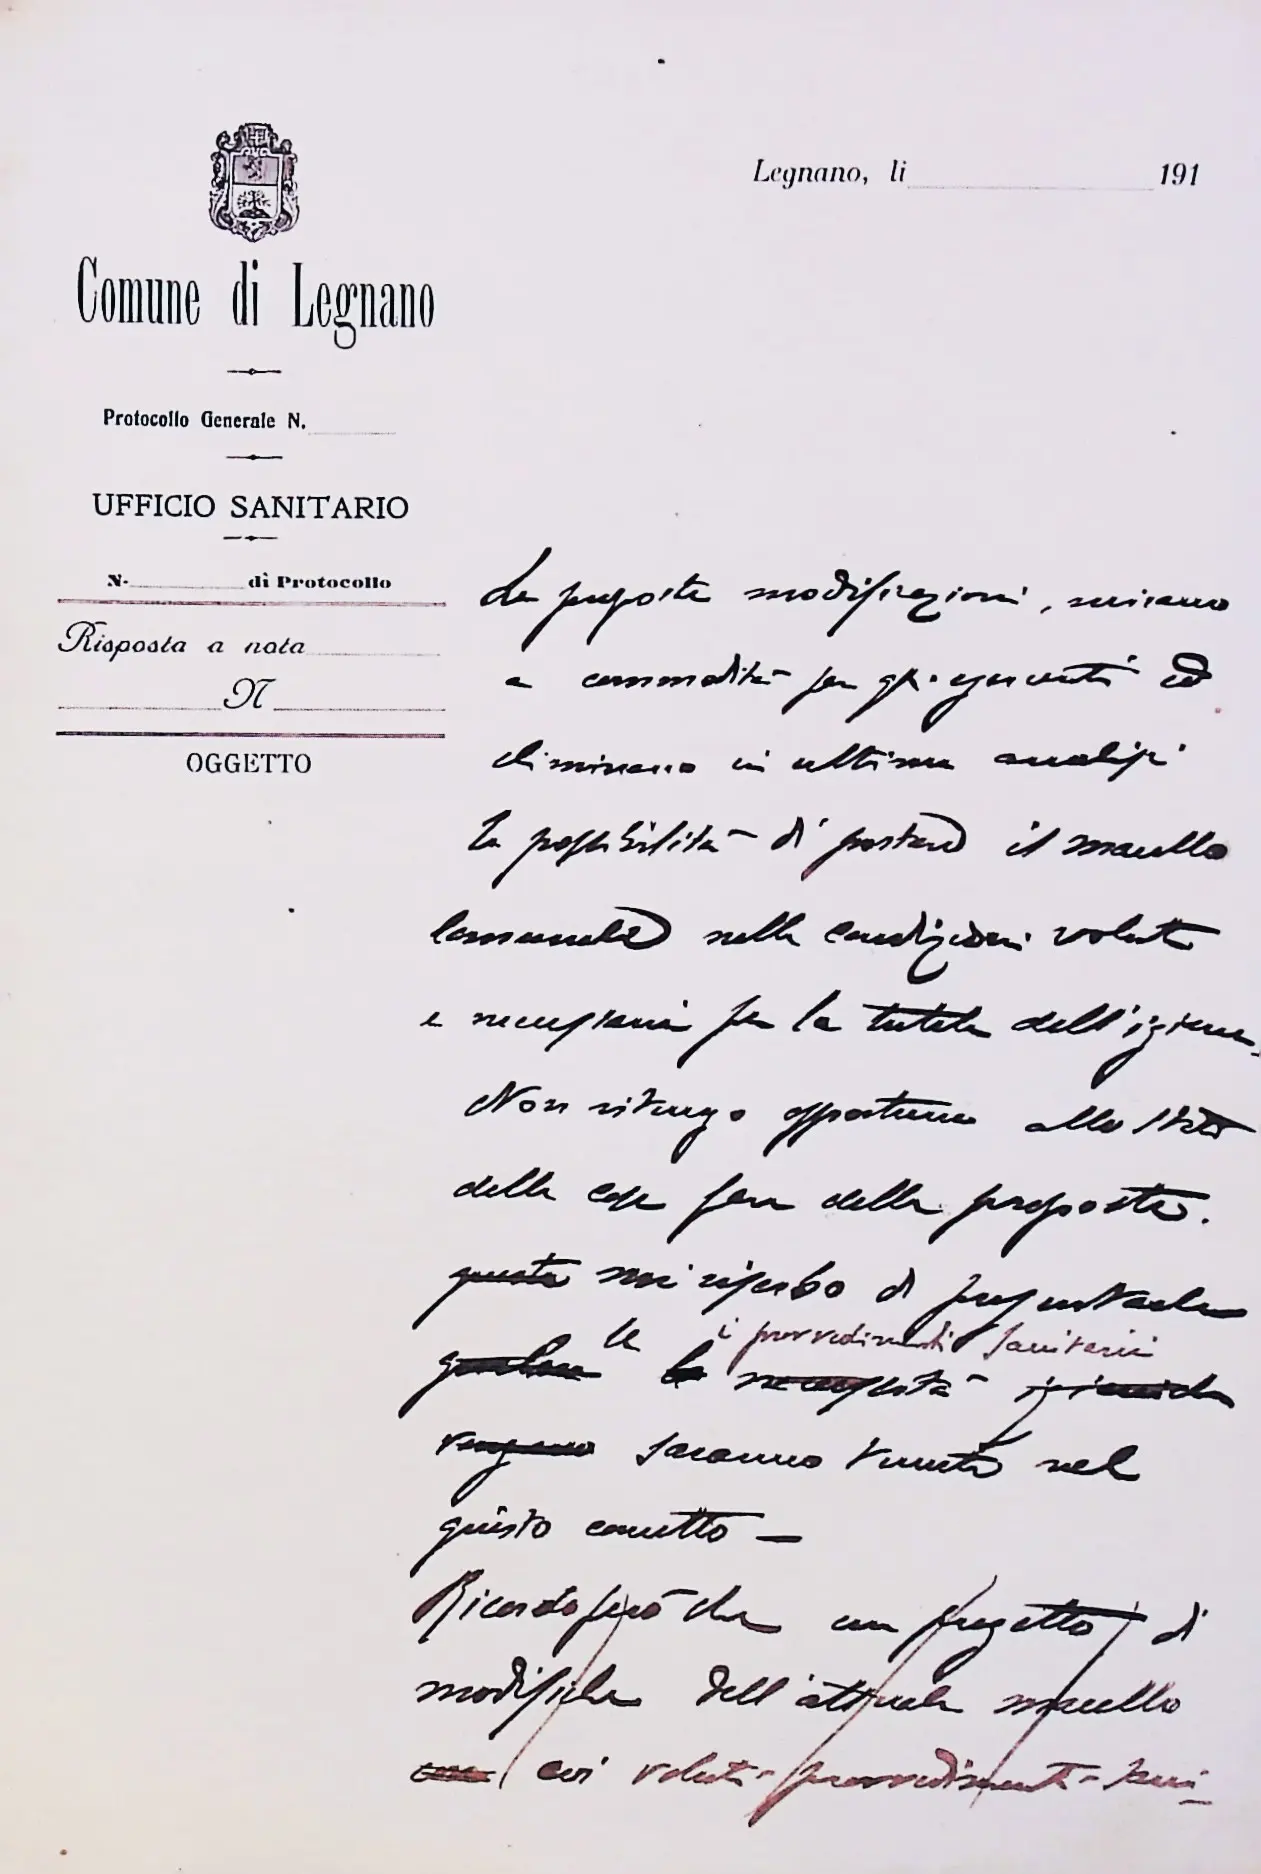 Legnano, li 191
Comune di Legnano
Protocollo Generale N.
UFFICIO SANITARIO
N. di Protocollo
Risposta a nota
N
OGGETTO
Le proposte modificazioni, mirano
a commodità per gli esercenti ed
eliminano in ultima analisi
la possibilità di portare il macello
Comunale nelle condizioni volute
e necessarie per la tutela dell'igiene.
Non ritengo opportuno allo stato
delle cose fare delle proposte.
queste mi riserbo di
le i provvedimenti sanitarii
la necessità igieniche
vengano saranno tenuti nel
giusto concetto —
Ricordo però che un progetto di
modifiche dell'attuale macello
coi voluti provvedimenti